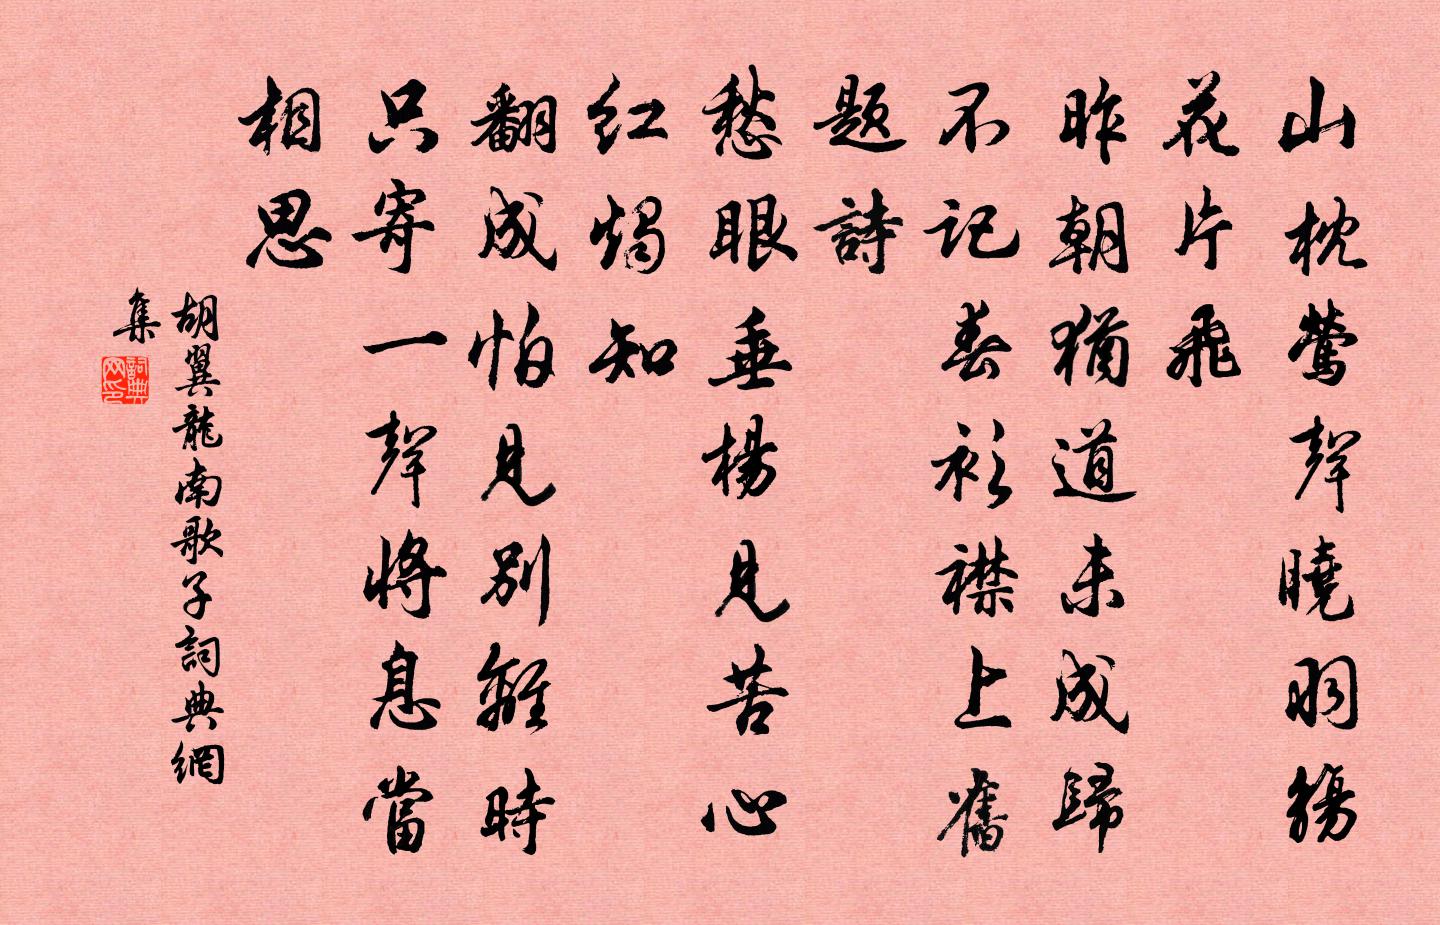 山枕鶯聲曉羽觴
花片飛
昨朝猶道未成歸
不記春衫襟上舊
題詩
愁眼垂楊見苦心
紅燭知
翻成怕見別離時
只寄一聲將息當
相思
胡翼龍南歌子詞典網
集
詞典
网印